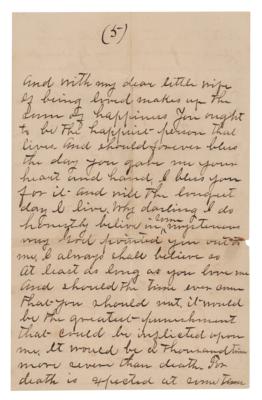 (5)
And with my dear little wife
if being loved makes up the
sum of happiness You ought
to be the happiest person that
lives And should forever bless
the day you gave me your
heart and hand, I bless you
for it and will the longest
day I live, Why darling I do
honestly believe in some mysterious
way God pointed you out to
me, I always shall believe so
At least so long as you love me
And should the time ever come
that you should not, it would
be the greatest punishment
that could be inflicted upon
me, It would be a thousand times
more severe than death. For
death is expected at some time